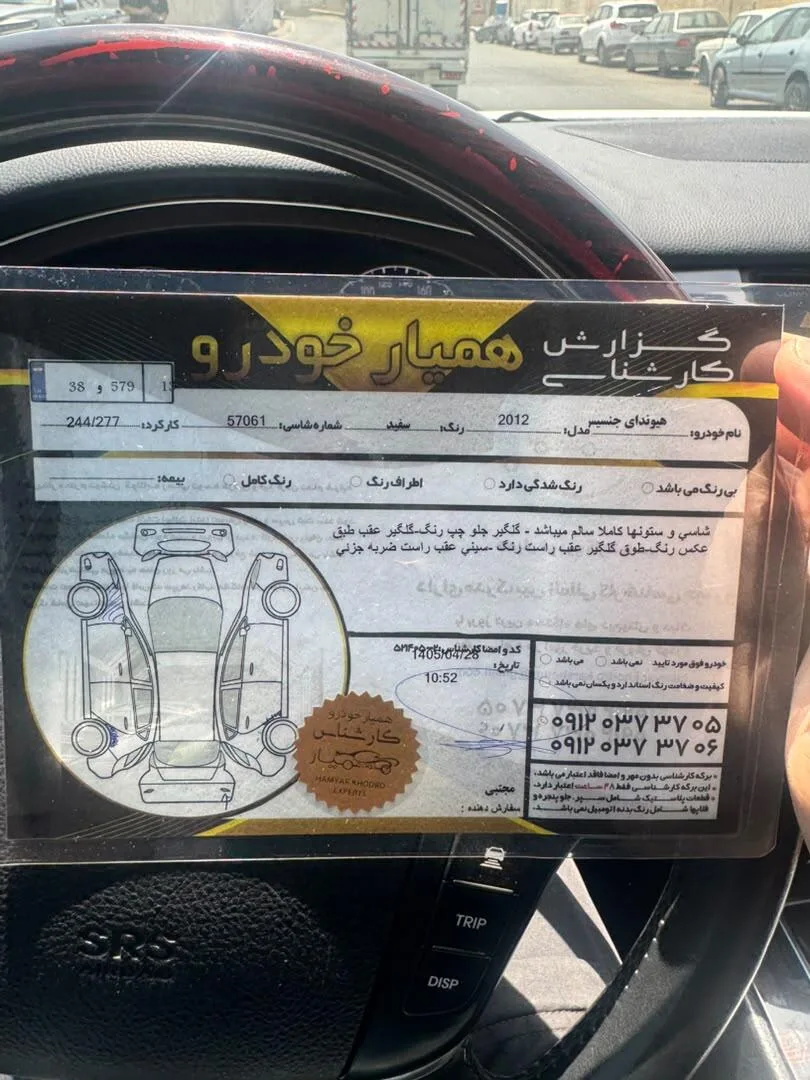 گزارش
کارشناسی
همیار خودرو
38 و 579
نام خودرو: هیوندای جنسیس مدل: 2012 رنگ: سفید شماره شاسی: 57061 کارکرد: 244/277
بی رنگ می باشد رنگ شدگی دارد اطراف رنگ رنگ کامل بیمه:
شاسی و ستونها کاملا سالم میباشد - گلگیر جلو چپ رنگ-گلگیر عقب طبق
عکس رنگ-طوق گلگیر عقب راست رنگ -سینی عقب راست ضربه جزئی
کد و امضا کارشناس:
تاریخ: 1405/04/28
10:52
خودرو فوق مورد تایید نمی باشد می باشد
کیفیت و ضخامت رنگ استاندارد و یکسان نمی باشد
۰۹۱۲ ۰۳۷ ۳۷ ۰۵
۰۹۱۲ ۰۳۷ ۳۷ ۰۶
* برگه کارشناسی بدون مهر و امضا فاقد اعتبار می باشد.
* این برگه کارشناسی فقط ۴۸ ساعت اعتبار دارد.
* قطعات پلاستیک شامل سپر، جلو پنجره و
قلاب‍ها شامل رنگ بدنه اتومبیل نمی باشند.
مجتبی
سفارش دهنده :
همیار خودرو
کارشناس
همیار
HAMYAR KHODRO
EXPERTS
SRS
AIRBAG
TRIP
DISP